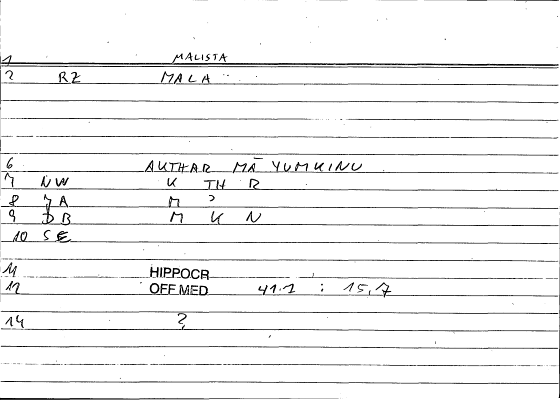 1 MALISTA
2 RZ MALA
6 AKTHAR MĀ YUMKINU
7 NW K TH R
8 JA M ʾ
9 DB M K N
10 SE
11 HIPPOCR
12 OFF.MED 41.1 : 15,7
14 ?